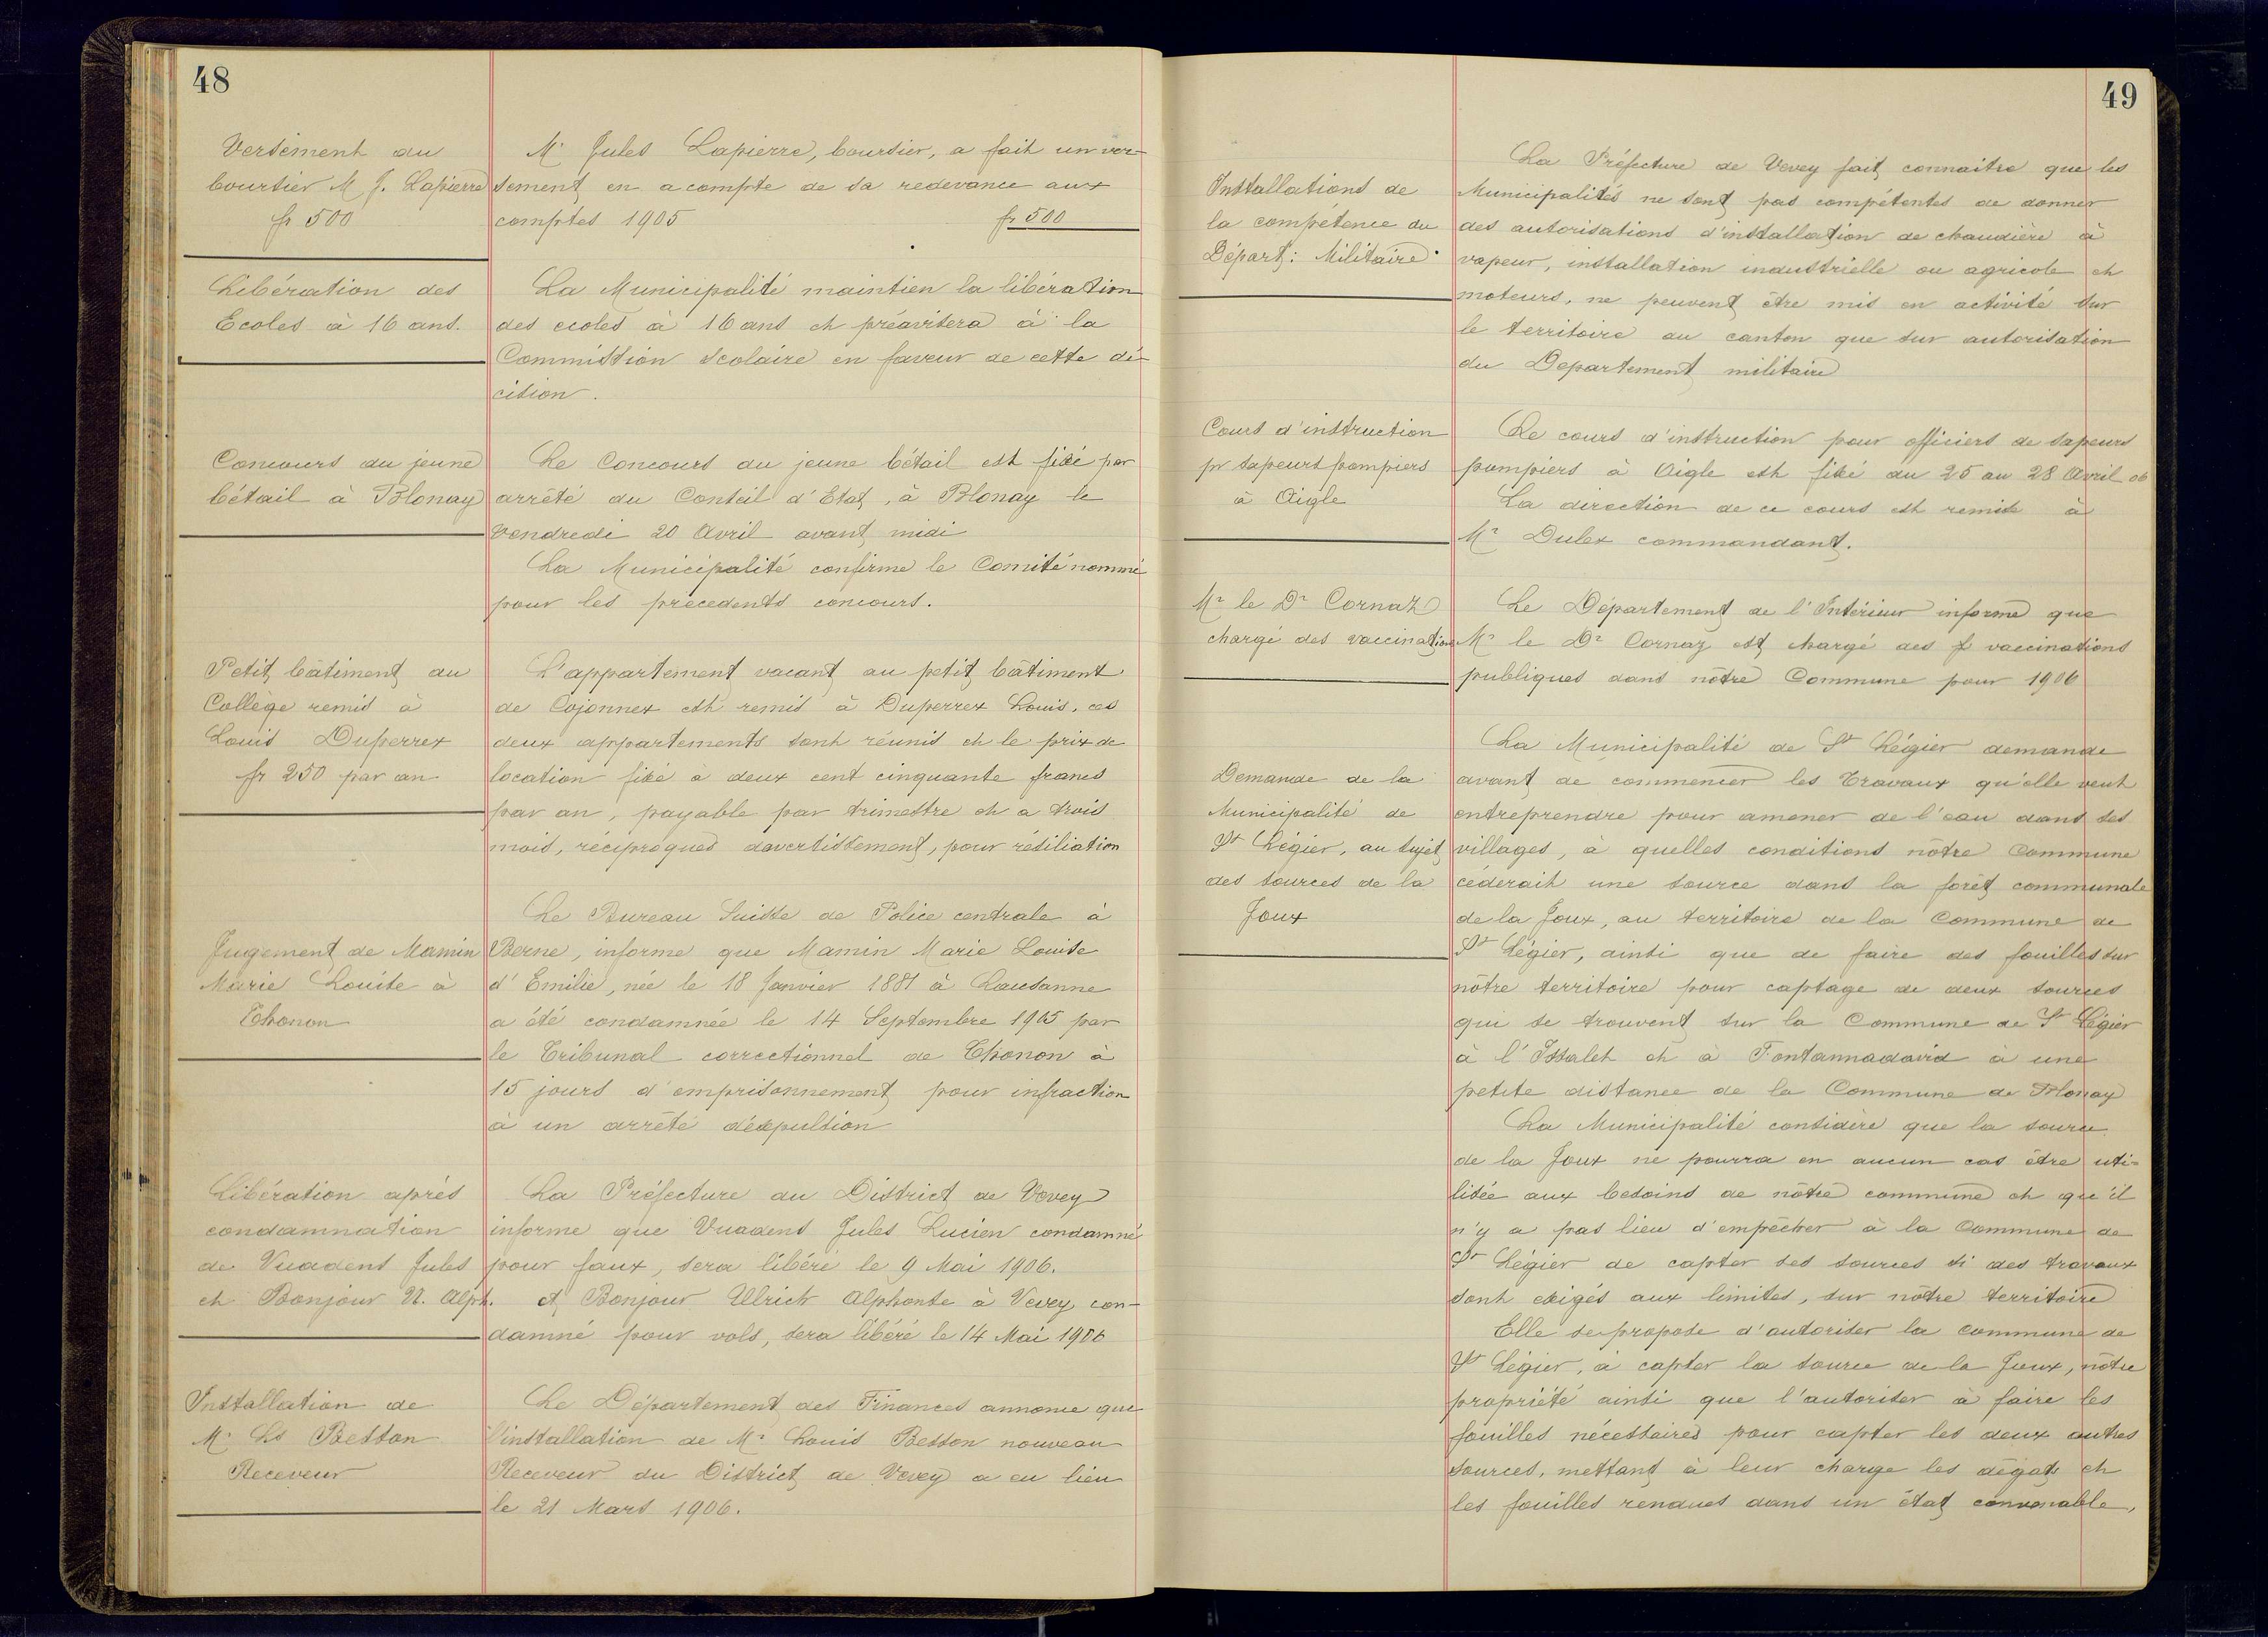 48
Versement du
boursier M J. Lapierre
fr 500
Mr Jules Lapierre, boursier, a fait un ver-
sement en acompte de sa redevance aux
comptes 1905 fr 500
Libération des
Ecoles à 16 ans.
La Municipalité maintien la libération
des ecoles à 16 ans et préavisera à la
Commission scolaire en faveur de cette dé-
cision.
Concours du jeune
bétail à Blonay
Le Concours du jeune bétail est fixé par
arrêté du Conseil d'Etat, à Blonay le
Vendredi 20 Avril avant midi
La Municipalité confirme le Comité nommé
pour les precedents concours.
Petit bâtiment du
Collège remis à
Louis Duperrex
fr 250 par an
L'appartement vacant au petit bâtiment
de Cojonnex est remis à Duperrex Louis, ces
deux appartements sont réunis et le prix de
location fixé à deux cent cinquante francs
par an, payable par trimestre et a trois
mois, réciproques davertissement, pour résiliation
Jugement de Mamin
Marie Louise à
Thonon
Le Bureau Suisse de Police centrale à
Berne, informe que Mamin Marie Louise
d'Emilie, née le 18 Janvier 1881 à Lausanne
a été condamnée le 14 Septembre 1905 par
le Tribunal correctionnel de Thonon à
15 jours d'emprisonnement pour infraction
à un arrêté d'éxpulsion
Libération après
condamnation
de Vuadens Jules
et Bonjour U. Alph.
La Préfecture du District de Vevey
informe que Vuadens Jules Lucien condamné
pour faux, sera libéré le 9 Mai 1906.
et Bonjour Ulrich Alphonse à Vevey con-
damné pour vols, sera libéré le 14 Mai 1906
Installation de
Mr Ls Besson
Receveur
Le Département des Finances annonce que
l'installation de Mr Louis Besson nouveau
Receveur du District de Vevey a eu lieu
le 21 Mars 1906.
49
Installations de
la compétence du
Départ: Militaire
La Préfecture de Vevey fait connaitre que les
Municipalités ne sont pas compétentes de donner
des autorisations d'installation de chaudière à
vapeur, installation industrielle ou agricole et
moteurs, ne peuvent être mis en activité sur
le territoire du canton que sur autorisation
du Departement militaire
Cours d'instruction
pr sapeurs pompiers
à Aigle
Le cours d'instruction pour officiers de sapeurs
pompiers à Aigle est fixé du 25 au 28 Avril 06
La direction de ce cours est remise à
Mr Dulex commandant.
Mr le Dr Cornaz
chargé des vaccinations
Le Département de l'Intérieur informe que
Mr le Dr Cornaz est chargé des vaccinations
publiques dans nôtre Commune pour 1906
Demande de la
Municipalité de
St Légier, au sujet
des sources de la
Joux
La Municipalité de St Légier demande
avant de commencer les Travaux qu'elle veut
entreprendre pour amener de l'eau dans ses
villages, à quelles conditions nôtre Commune
céderait une source dans la forêt communale
de la Joux, au territoire de la Commune de
St Légier, ainsi que de faire des fouilles sur
nôtre territoire pour captage de deux sources
qui se trouvent sur la Commune de St Légier
à l'Issalet et à Fontannadavid à une
petite distance de la Commune de Blonay
La Municipalité considère que la source
de la Joux ne pourra en aucun cas être uti-
lisée aux besoins de nôtre commune et qu'il
n'y a pas lieu d'empêcher à la Commune de
St Légier de capter ses sources si des travaux
sont exigés aux limites, sur nôtre territoire
Elle se propose d'autoriser la commune de
St Légier, à capter la source de la Joux, nôtre
propriété ainsi que l'autoriser à faire les
fouilles nécessaires pour capter les deux autres
sources, mettant à leur charge les dégats et
les fouilles rendues dans un état convenable,